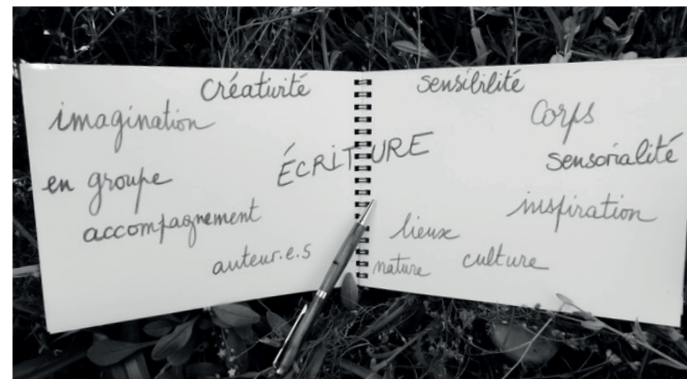 Créativité
imagination
en groupe
accompagnement
auteur.e.s
ÉCRITURE
sensibilité
Corps
sensorialité
inspiration
lieux
nature
culture